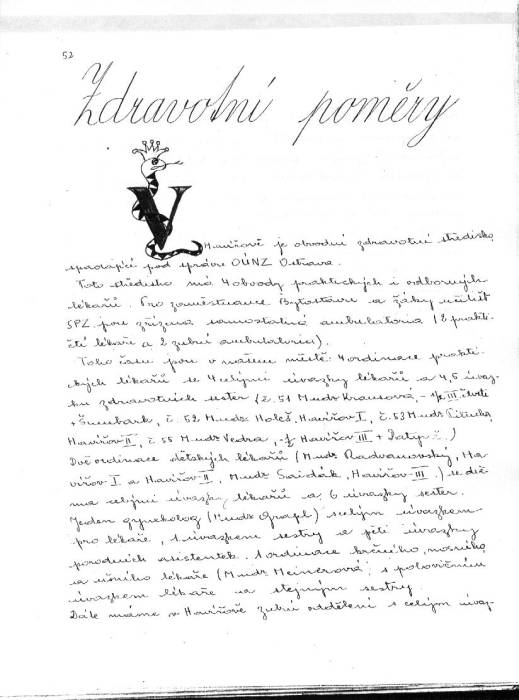 52
Zdravotní poměry
V Havířově je obvodní zdravotní středisko,
spadající pod správu OÚNZ Ostrava.
Toto středisko má 4 obvody praktických i odborných
lékařů. Pro zaměstnance Bytostavu a žáky učilišť
SPZ jsou zřízena samostatná ambulatoria (2 prakti-
čtí lékaře a 2 zubní ambulatoria).
Toho času jsou v našem městě: 4 ordinace prakti-
ckých lékařů se 4 celými úvazky lékařů a 4,5 úvaz-
ku zdravotních sester (č. 51 Mudr Krausová, III čtvrti
+ Šumbark, č. 52 Mudr Holeš, Havířov I, č. 53 Mudr
Havířov II, č. 55 Mudr Vedra, Havířov III +
Dvě ordinace dětských lékařů (Mudr Radvanovský, Ha-
vířov I a Havířov II, Mudr Havířov III.) se dvě-
ma celými úvazky lékařů a 6 úvazky sester.
Jeden gynekolog (Mudr Grafl) s celým úvazkem
pro lékaře, 1 úvazkem sestry a pěti úvazky
porodních asistentek. 1 ordinace krčního, nosního
a ušního lékaře (Mudr Meinerová) s polovičním
úvazkem lékaře a stejným sestry.
Dále máme v Havířově zubní oddělení s celým úvaz-